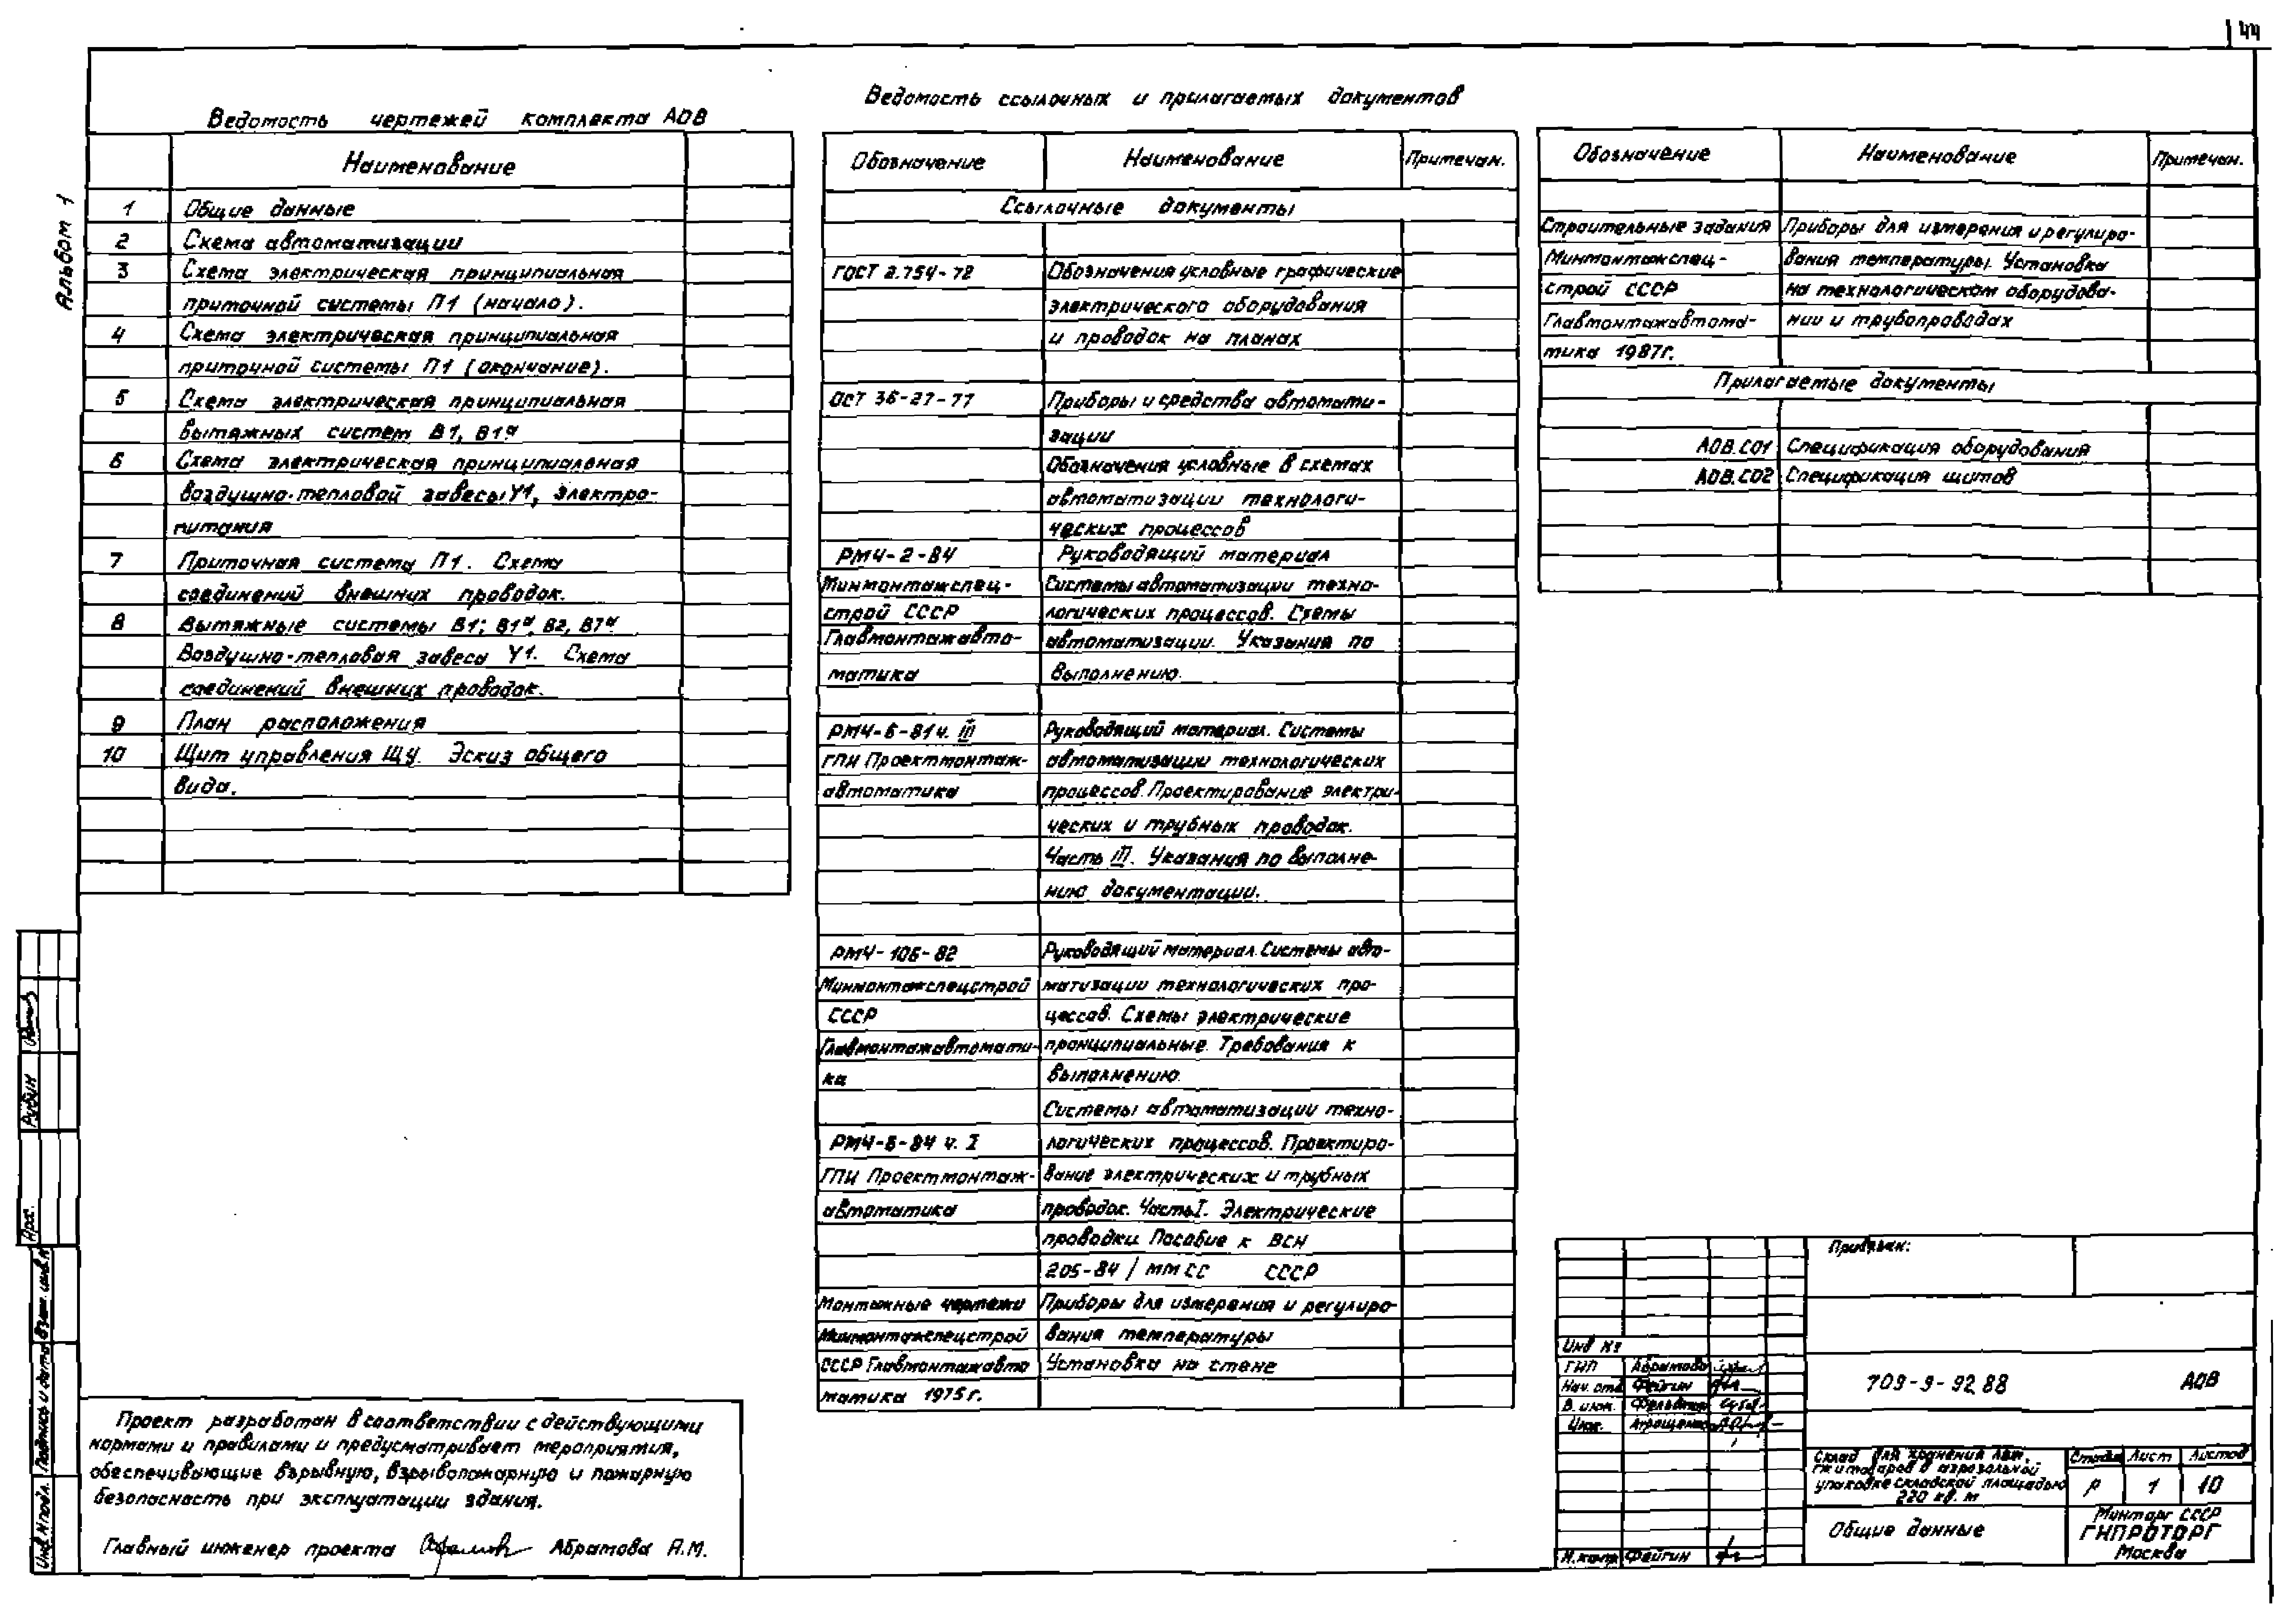 44
Альбом 1
Ведомость чертежей комплекта АОВ
Наименование
1 Общие данные
2 Схема автоматизации
3 Схема электрическая принципиальная
приточной системы П1 (начало).
4 Схема электрическая принципиальная
приточной системы П1 (окончание).
5 Схема электрическая принципиальная
вытяжных систем В1, В1а
6 Схема электрическая принципиальная
воздушно-тепловой завесы У1, электро-
питания
7 Приточная система П1. Схема
соединений внешних проводок.
8 Вытяжные системы В1; В1а, В2, В7а
Воздушно-тепловая завеса У1. Схема
соединений внешних проводок.
9 План расположения
10 Щит управления ЩУ. Эскиз общего
вида.
Ведомость ссылочных и прилагаемых документов
Обозначение Наименование Примечан.
Ссылочные документы
ГОСТ 2.754-72 Обозначения условные графические
электрического оборудования
и проводок на планах
ОСТ 36-27-77 Приборы и средства автомати-
зации
Обозначения условные в схемах
автоматизации технологи-
ческих процессов
РМ4-2-84 Руководящий материал
Минмонтажспец- Системы автоматизации техно-
строй СССР логических процессов. Схемы
Главмонтажавто- автоматизации. Указания по
матика выполнению.
РМ4-6-81 ч. III Руководящий материал. Системы
ГПИ Проектмонтаж- автоматизации технологических
автоматика процессов. Проектирование электри-
ческих и трубных проводок.
Часть III. Указания по выполне-
нию документации.
РМ4-106-82 Руководящий материал. Системы авто-
Минмонтажспецстрой матизации технологических про-
СССР цессов. Схемы электрические
Главмонтажавтомати- принципиальные. Требования к
ка выполнению.
Системы автоматизации техно-
РМ4-6-84 ч. I логических процессов. Проектиро-
ГПИ Проектмонтаж- вание электрических и трубных
автоматика проводок. Часть I. Электрические
проводки. Пособие к ВСН
205-84 / ММСС СССР
Монтажные чертежи Приборы для измерения и регулиро-
Минмонтажспецстрой вания температуры
СССР Главмонтажавто Установка на стене
матика 1975г.
Обозначение Наименование Примечан.
Строительные задания Приборы для измерения и регулиро-
Минмонтажспец- вания температуры. Установка
строй СССР на технологическом оборудова-
Главмонтажавтома- нии и трубопроводах
тика 1987г.
Прилагаемые документы
АОВ.СО1 Спецификация оборудования
АОВ.СО2 Спецификация щитов
Проект разработан в соответствии с действующими
нормами и правилами и предусматривает мероприятия,
обеспечивающие взрывную, взрывопожарную и пожарную
безопасность при эксплуатации здания.
Главный инженер проекта Абрамова А.М.
Арх. Рубин
Инв. N подл. Подпись и дата Взам. инв. N
Привязан:
Инв №
ГИП Абрамова
Нач. отд. Фейгин
В. инж.
Инж.
Н.контр Фейгин
709-9-92.88 АОВ
Склад для хранения лвж,
гж и товаров в аэрозольной
упаковке складской площадью
220 кв. м
Стадия Лист Листов
Р 1 10
Общие данные
Минторг СССР
ГИПРОТОРГ
Москва